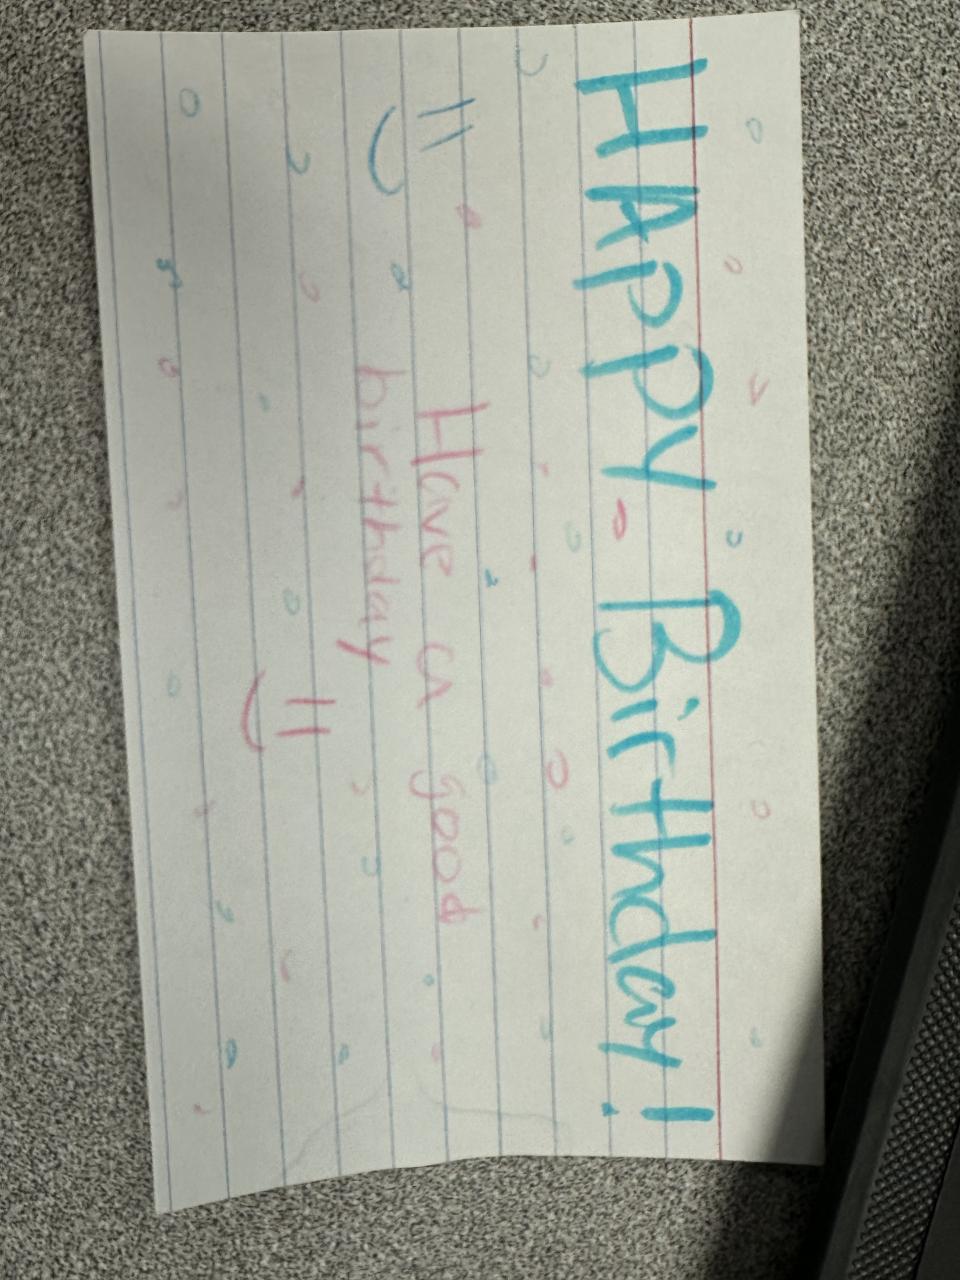 HAPPY Birthday!
Have a good
birthday